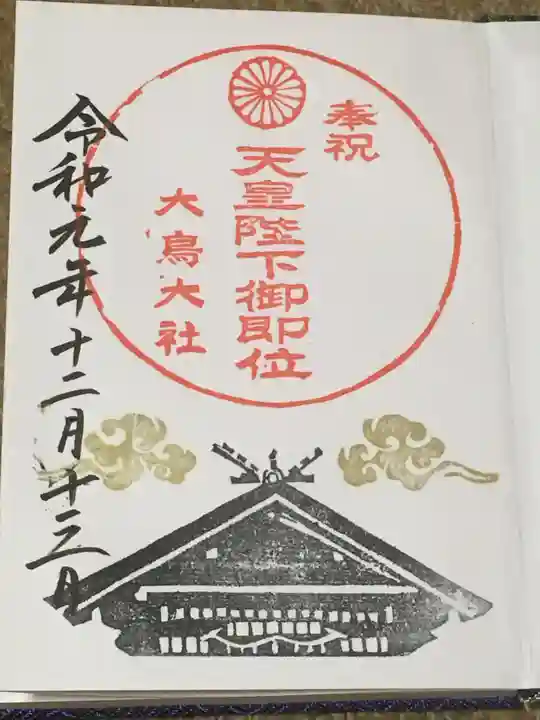 奉祝
天皇陛下御即位
大鳥大社
令和元年十二月十三日